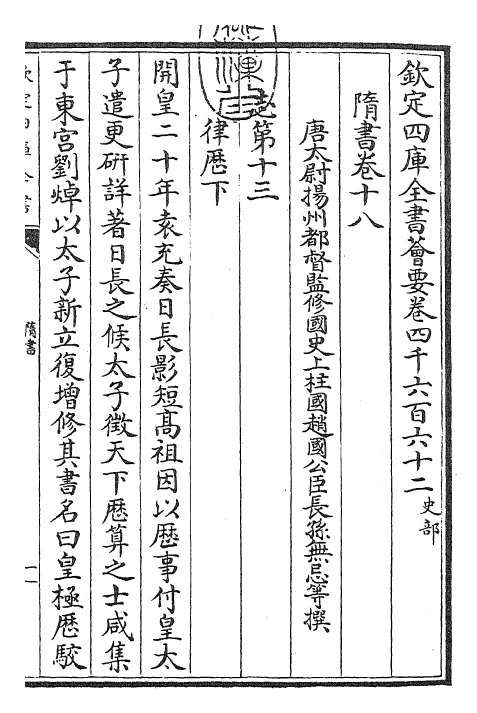 欽定四庫全書薈要卷四千六百六十二 史部
隋書卷十八
唐太尉揚州都督監修國史上柱國趙國公臣長孫無忌等撰
志第十三
律厯下
開皇二十年袁充奏日長影短髙祖因以厯事付皇太
子遣更研詳著日長之候太子徵天下厯算之士咸集
于東宫劉焯以太子新立復增修其書名曰皇極厯駮
隋書
一